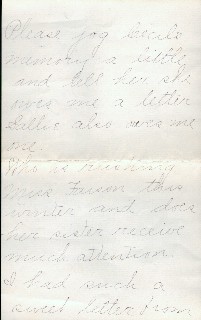 Please jog Lucile
memory a little
and tell her she
owes me a letter
Lillie also owes me
one.
Who is rushing
Miss Faison this
winter and does
her sister receive
much attention
I had such a
sweet letter from